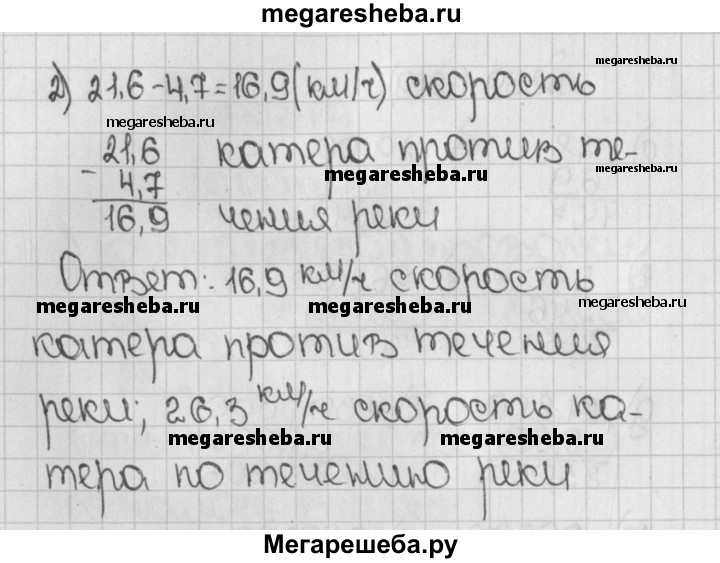 megaresheba.ru
megaresheba.ru
2) 21,6 - 4,7 = 16,9 (км/ч) скорость
megaresheba.ru
21,6 катера против те-
megaresheba.ru
megaresheba.ru
- 4,7
16,9 чения реки
Ответ: 16,9 км/ч скорость
megaresheba.ru megaresheba.ru megaresheba.ru
катера против течения
реки; 26,3 км/ч скорость ка-
megaresheba.ru megaresheba.ru
тера по течению реки
Мегарешеба.ру